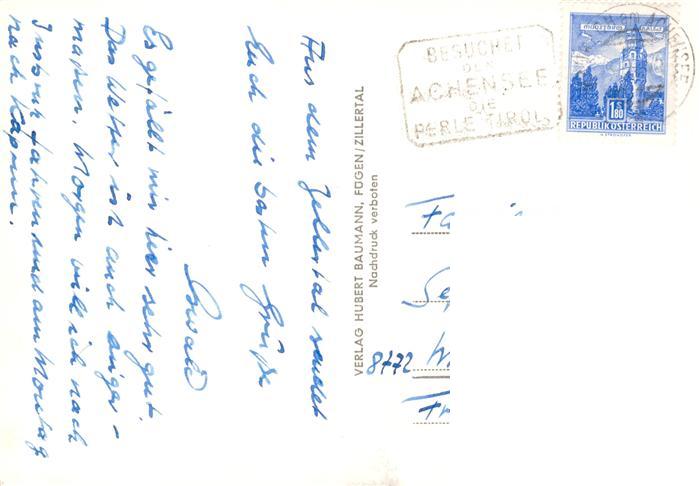 Aus dem Zillertal sendet
Euch die besten Grüße
Oswald
Es gefällt mir hier sehr gut.
Das Wetter ist auch einiger-
maßen. Morgen will ich nach
Innsbr. fahren und am Montag
nach Kaprun.
VERLAG HUBERT BAUMANN, FÜGEN/ZILLERTAL
Nachdruck verboten
BESUCHET
DEN
ACHENSEE
DIE
PERLE TIROLS
S
1.80
REPUBLIK ÖSTERREICH
8772